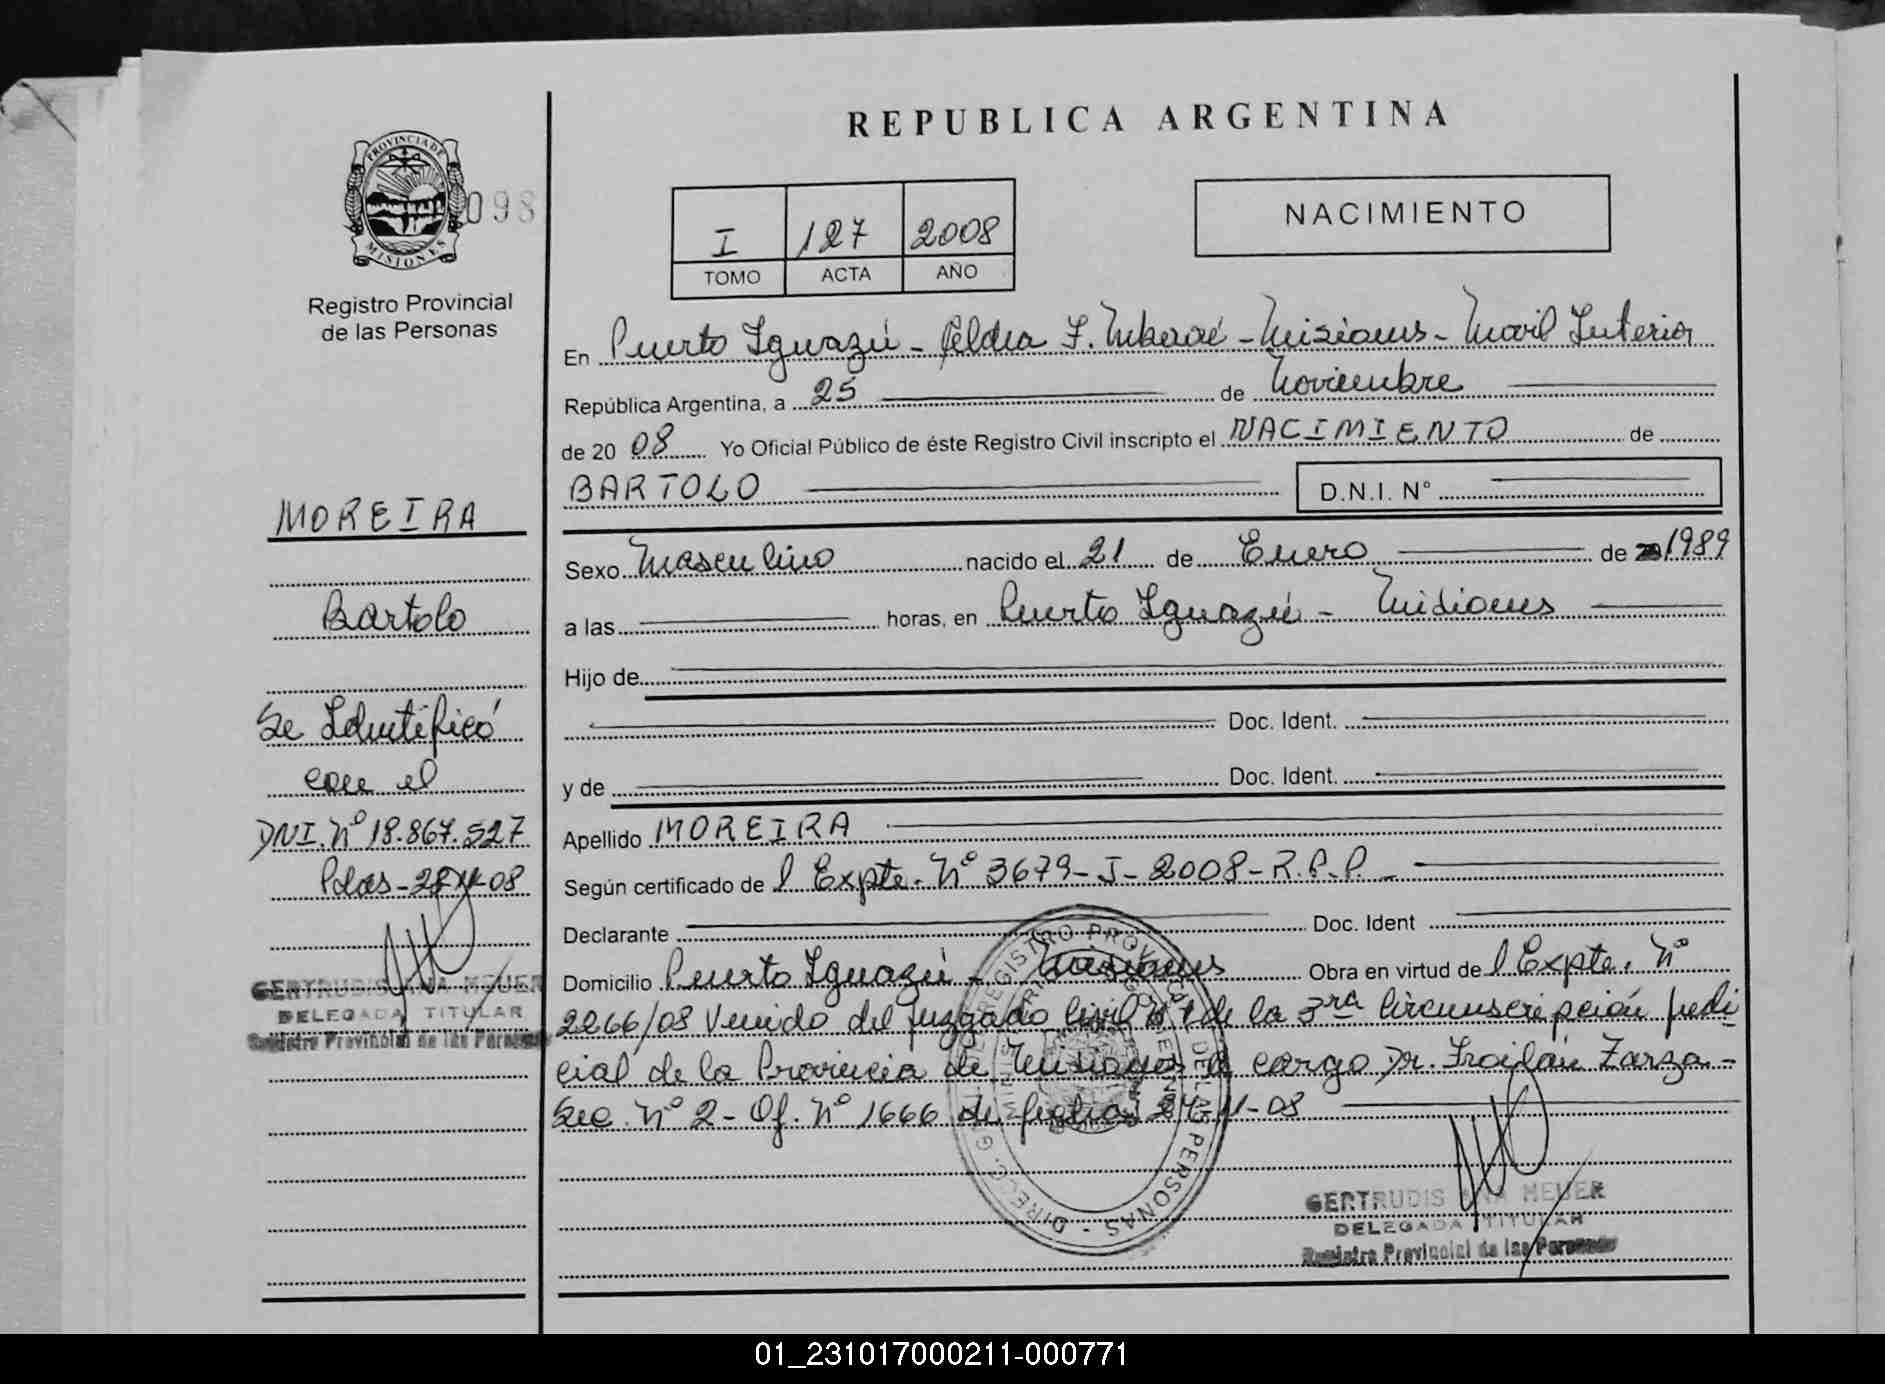 REPUBLICA ARGENTINA
PROVINCIA DE MISIONES
098
Registro Provincial
de las Personas
I 127 2008
TOMO ACTA AÑO
NACIMIENTO
En Puerto Iguazú - Aldea F. Mberoé - Misiones - Movil Interior
República Argentina, a 25 de Noviembre
de 20 08 Yo Oficial Público de éste Registro Civil inscripto el NACIMIENTO de
BARTOLO D.N.I. N°
MOREIRA
Bartolo
Se Identificó
con el
DNI. Nº 18.867.527
Pdas - 28-11-08
GERTRUDIS ANA MEUER
DELEGADA TITULAR
Registro Provincial de las Personas
Sexo Masculino nacido el 21 de Enero de 1989
a las horas, en Puerto Iguazú - Misiones
Hijo de
Doc. Ident.
y de Doc. Ident.
Apellido MOREIRA
Según certificado de l Expte. Nº 3679-J-2008-R.P.P.-
Declarante Doc. Ident
Domicilio Puerto Iguazú - Misiones Obra en virtud de l Expte. Nº
2266/08 Venido del Juzgado Civil Nº 1 de la 3ra Circunscripción Judi
cial de la Provincia de Misiones a cargo Dr. Froilán Zarza -
Sec. Nº 2 - Of. Nº 1666 de fecha 24-11-08
DIREC. GRAL. REGISTRO PROVINCIAL DE LAS PERSONAS
GERTRUDIS ANA MEUER
DELEGADA TITULAR
Registro Provincial de las Personas
01_231017000211-000771